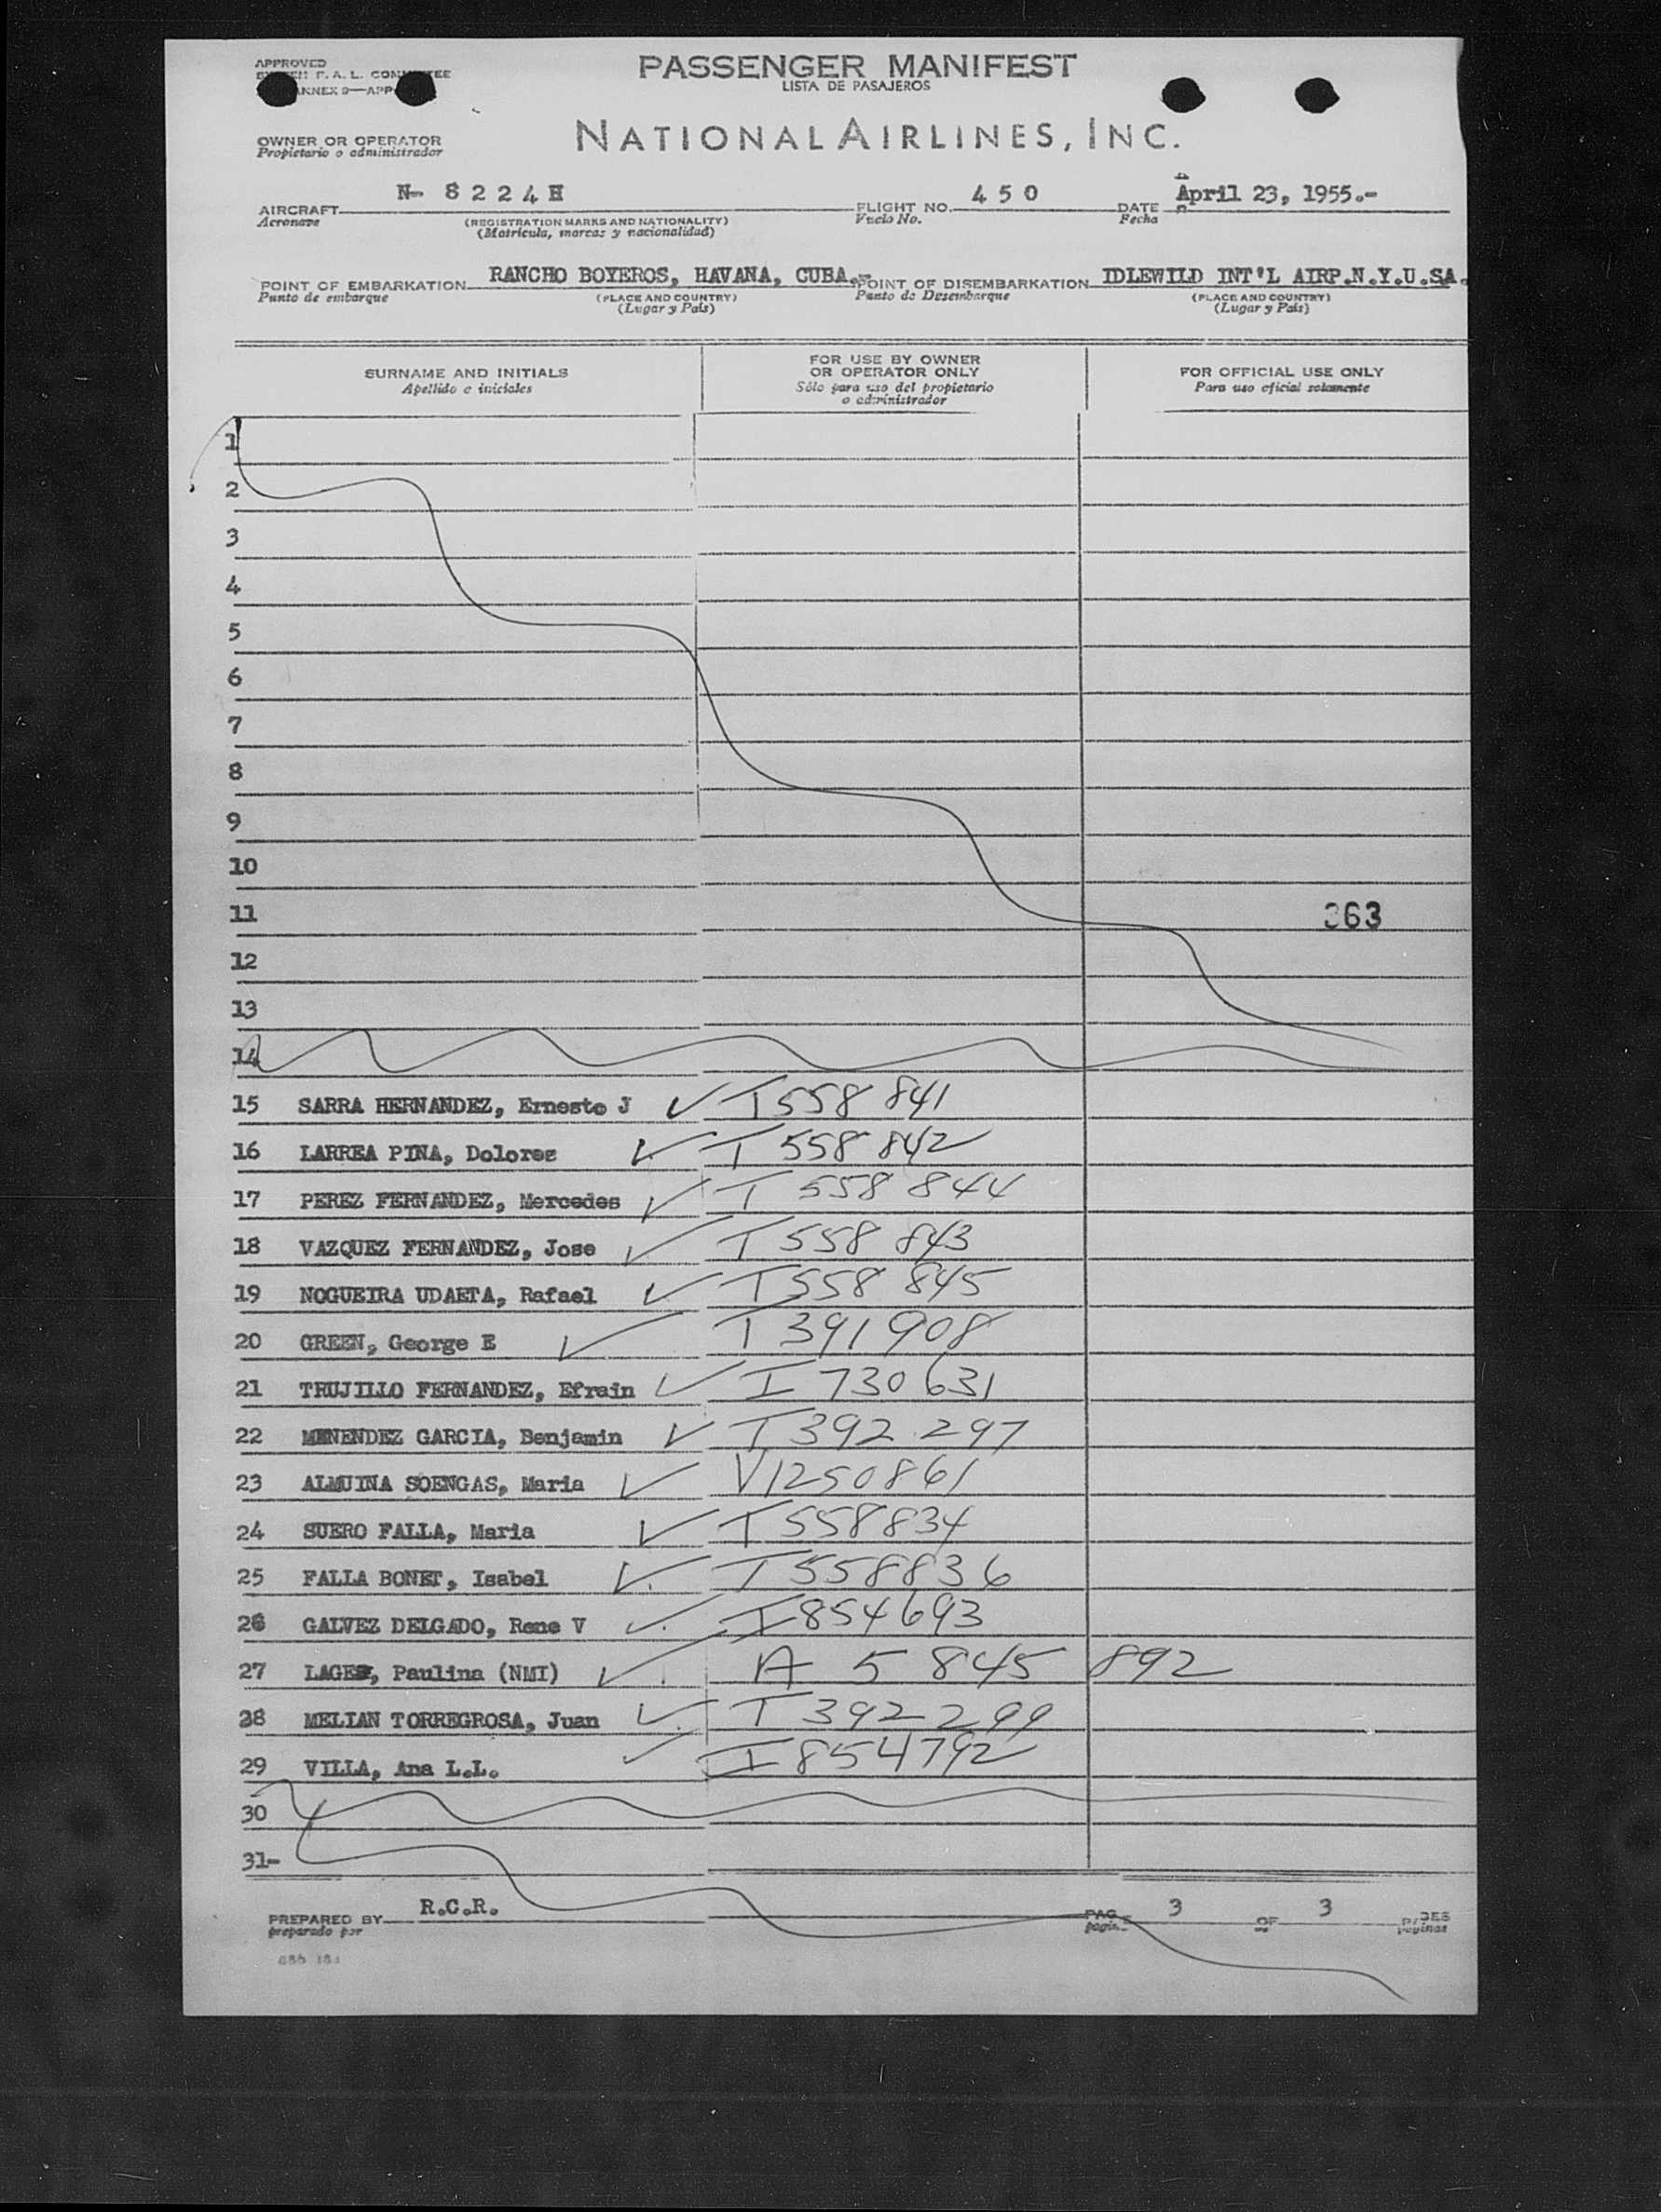 APPROVED
PASSENGER MANIFEST
LISTA DE PASAJEROS
F. A. L.
ANNEX 9—APP
OWNER OR OPERATOR
Propietario o administrador
NATIONAL AIRLINES, INC.
N- 8 2 2 4 H
4 5 0
April 23, 1955.-
AIRCRAFT
FLIGHT NO.
DATE
Aeronave
(REGISTRATION MARKS AND NATIONALITY)
Vuelo No.
Fecha
(Matricula, marcas y nacionalidad)
RANCHO BOYEROS, HAVANA, CUBA.-
IDLEWILD INT'L AIRP.N.Y.U.SA.
POINT OF EMBARKATION
POINT OF DISEMBARKATION
Punto de embarque
(PLACE AND COUNTRY)
Punto de Desembarque
(PLACE AND COUNTRY)
(Lugar y País)
(Lugar y País)
SURNAME AND INITIALS
Apellido e iniciales
FOR USE BY OWNER
OR OPERATOR ONLY
Sólo para uso del propietario
o administrador
FOR OFFICIAL USE ONLY
Para uso oficial solamente
1
2
3
4
5
6
7
8
9
10
11 363
12
13
14
15 SARRA HERNANDEZ, Ernesto J ✓ T558 841
16 LARREA PINA, Dolores ✓ T 558 842
17 PEREZ FERNANDEZ, Mercedes ✓ T 558 844
18 VAZQUEZ FERNANDEZ, Jose ✓ T 558 843
19 NOGUEIRA UDAETA, Rafael ✓ T558 845
20 GREEN, George E ✓ T 391908
21 TRUJILLO FERNANDEZ, Efrain ✓ I 730631
22 MENENDEZ GARCIA, Benjamin ✓ T 392 297
23 ALMUINA SOENGAS, Maria ✓ V1250861
24 SUERO FALLA, Maria ✓ T558834
25 FALLA BONET, Isabel ✓ T558836
26 GALVEZ DELGADO, Rene V ✓ I854693
27 LAGES, Paulina (NMI) ✓ A 5 845 892
28 MELIAN TORREGROSA, Juan ✓ T 392 299
29 VILLA, Ana L.L. ✓ I854792
30
31-
PREPARED BY R.C.R.
preparado por
3 OF 3
paginas